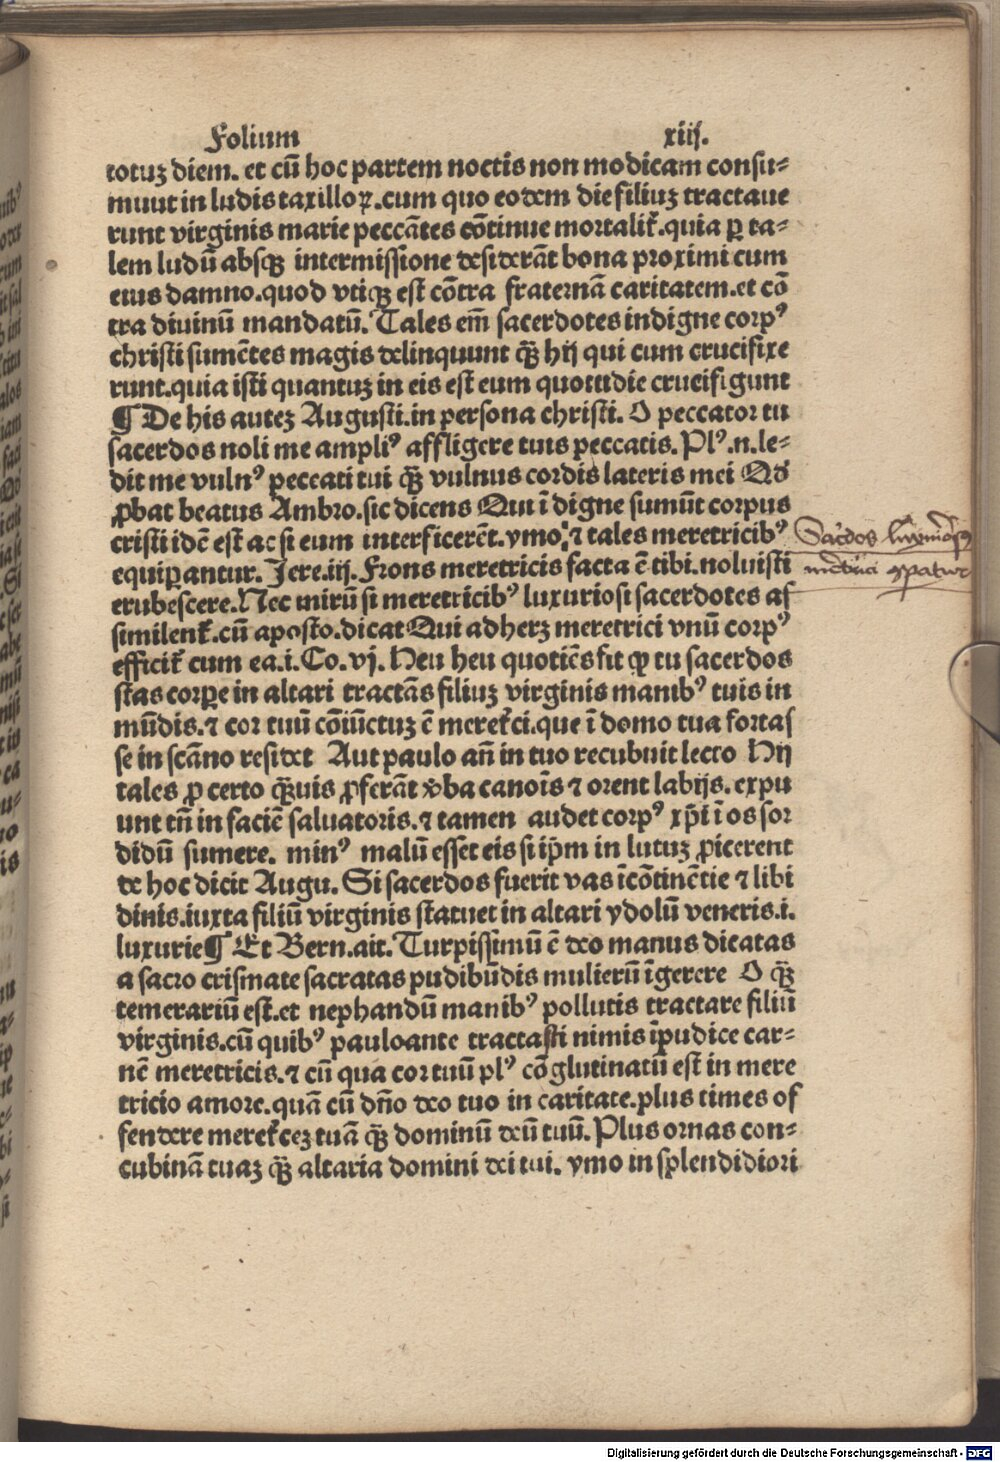 Folium xiij.
totuz diem. et cū hoc partem noctis non modicam consu⸗
muut in ludis taxilloꝝ.cum quo eodem die filiuz tractaue
runt virginis marie peccātes cōtinue mortalit̄.quia ꝑ ta⸗
lem ludū absqꝫ intermissione desiderāt bona proximi cum
eius damno.quod vtiqꝫ est cōtra fraternā caritatem.et cō
tra diuinū mandatū. Tales em̄ sacerdotes indigne corpꝰ
christi sumētes magis delinquunt qꝫ̄ hij qui cum crucifixe
runt.quia isti quantuz in eis est eum quottidie crucifigunt
¶ De his autez Augusti.in persona christi. O peccator tu
sacerdos noli me ampliꝰ affligere tuis peccatis. Plꝰ.n.le⸗
dit me vulnꝰ peccati tui qꝫ̄ vulnus cordis lateris mei Qđ
ꝓbat beatus Ambro.sic dicens Qui ī digne sumūt corpus
cristi idē est ac si eum interficerēt.ymo ⁊ tales meretricibꝰ
equiꝑantur. Jere.iij. Frons meretricis facta ē tibi.noluisti
erubescere.Nec mirū si meretricibꝰ luxuriosi sacerdotes as
similent̄.cū aposto.dicat Qui adherz meretrici vnū corpꝰ
efficit̄ cum ea.i.Co.vj. Heu heu quotiēs fit ꝙ tu sacerdos
stas corꝑe in altari tractās filiuz virginis manibꝰ tuis in
mūdis.⁊ cor tuū cōiūctuz ē meret̄ci.que ī domo tua fortas
se in scāno residet Aut paulo añ in tuo recubuit lecto Hij
tales ꝓ certo qꝫ̄uis ꝓferāt v̄ba canoīs ⁊ orent labijs. expu
unt tñ in faciē saluatoris.⁊ tamen audet corpꝰ xp̄i ī os sor
didū sumere. minꝰ malū esset eis si ip̄m in lutuz ꝓicerent
de hoc dicit Augu. Si sacerdos fuerit vas īcōtinētie ⁊ libi
dinis.iuxta filiū virginis statuet in altari ydolū veneris.i.
luxurie ¶ Et Bern.ait. Turpissimū ē deo manus dicatas
a sacro crismate sacratas pudibūdis mulierū īgerere O qꝫ̄
temerariū est.et nephandū manibꝰ pollutis tractare filiū
virginis.cū quibꝰ pauloante tractasti nimis īpudice car⸗
nē meretricis.⁊ cū qua cor tuū plꝰ cōglutinatū est in mere
tricio amore.quā cū dño deo tuo in caritate.plus times of
fendere meret̄cez tuā qꝫ̄ dominū deū tuū. Plus ornas con⸗
cubinā tuaz qꝫ̄ altaria domini dei tui. ymo in splendidiori
Sac̄dos
Digitalisierung gefördert durch die Deutsche Forschungsgemeinschaft - DFG